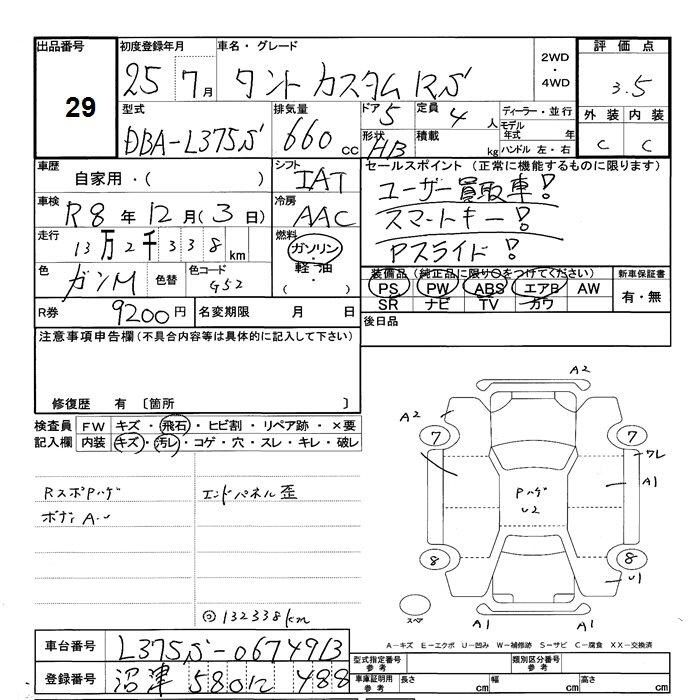 出品番号 29
初度登録年月 25 7月
車名・グレード タント カスタム RS
2WD・4WD
評価点 3.5
外装 C 内装 C
型式 DBA-L375S
排気量 660 cc
ドア 5 形状 HB
定員 4 人 積載 kg
ディーラー・並行
モデル年式 年
ハンドル 左・右
車歴 自家用・( )
シフト IAT
セールスポイント (正常に機能するものに限ります)
ユーザー買取車!
スマートキー!
Pスライド!
車検 R8年12月(3日)
冷房 AAC
走行 13万2千338km
燃料 ガソリン・軽油・( )
色 ガンM 色替 色コード G52
装備品(純正品に限り○をつけてください)
PS PW ABS エアB AW
SR ナビ TV カワ
新車保証書 有・無
R券 9200円 名変期限 月 日
後日品
注意事項申告欄(不具合内容等は具体的に記入して下さい)
修復歴 有 〔箇所 〕
検査員記入欄
FW キズ・飛石・ヒビ割・リペア跡・×要
内装 キズ・汚レ・コゲ・穴・スレ・キレ・破レ
RスポPハゲ
エンドパネル歪
◎132338km
A2
A2
7 7
ワレ
A1
Pハゲ
U2
8 8
U1
スペア
A1 A1
A-キズ E-エクボ U-凹み W-補修跡 S-サビ C-腐食 XX-交換済
車台番号 L375S-0674913
登録番号 沼津 580 488
型式指定番号 参考 類別区分番号 参考
車庫証明用 参考 長さ cm 幅 cm 高さ cm